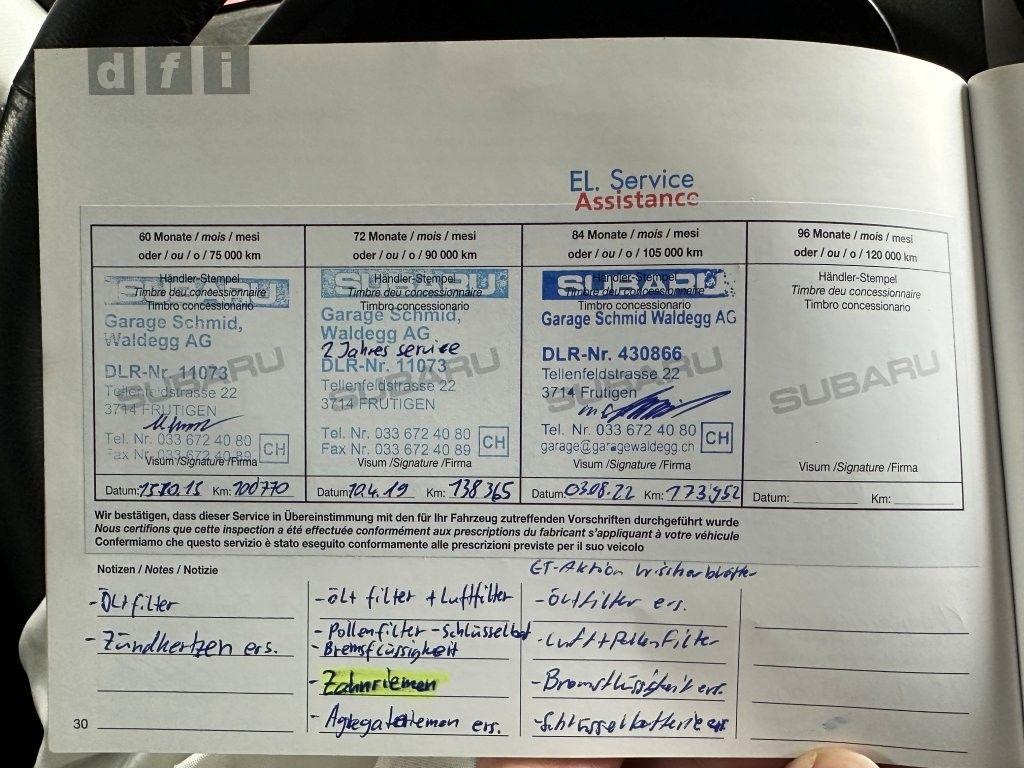 dfi
EL. Service
Assistance
60 Monate / mois / mesi
oder / ou / o / 75 000 km
Händler-Stempel
Timbre deu concessionnaire
Timbro concessionario
SUBARU
Garage Schmid,
Waldegg AG
DLR-Nr. 11073
SUBARU
Tellenfeldstrasse 22
3714 FRUTIGEN
Tel. Nr. 033 672 40 80
Fax Nr. 033 672 40 89
CH
Visum /Signature /Firma
Datum: 15.10.15 Km: 100770
72 Monate / mois / mesi
oder / ou / o / 90 000 km
Händler-Stempel
Timbre deu concessionnaire
Timbro concessionario
SUBARU
Garage Schmid,
Waldegg AG
2 Jahres service
DLR-Nr. 11073
SUBARU
Tellenfeldstrasse 22
3714 FRUTIGEN
Tel. Nr. 033 672 40 80
Fax Nr. 033 672 40 89
CH
Visum /Signature /Firma
Datum: 10.4.19 Km: 138365
84 Monate / mois / mesi
oder / ou / o / 105 000 km
Händler-Stempel
Timbre deu concessionnaire
Timbro concessionario
SUBARU
Garage Schmid Waldegg AG
DLR-Nr. 430866
SUBARU
Tellenfeldstrasse 22
3714 Frutigen
Tel. Nr. 033 672 40 80
garage@garagewaldegg.ch
CH
Visum /Signature /Firma
Datum: 03.08.22 Km: 173952
96 Monate / mois / mesi
oder / ou / o / 120 000 km
Händler-Stempel
Timbre deu concessionnaire
Timbro concessionario
SUBARU
Visum /Signature /Firma
Datum: Km:
Wir bestätigen, dass dieser Service in Übereinstimmung mit den für Ihr Fahrzeug zutreffenden Vorschriften durchgeführt wurde
Nous certifions que cette inspection a été effectuée conformément aux prescriptions du fabricant s'appliquant à votre véhicule
Confermiamo che questo servizio è stato eseguito conformamente alle prescrizioni previste per il suo veicolo
Notizen / Notes / Notizie
- Öl+filter
- Zündkertzen ers.
- Öl+ filter + Luftfilter
- Pollenfilter - Schlüsselbat
- Bremsflüssigkeit
- Zahnriemen
- Agregateriemen ers.
ET-Aktion Wischerblätter
- Öl+filter ers.
- Luft + Pollenfilter
- Bremsflüssigkeit ers.
- Schlüsselbatterie ers
30